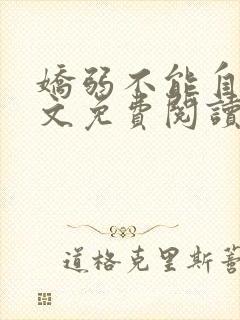 嬌弱不能自
文免費閱讀
道格克里斯